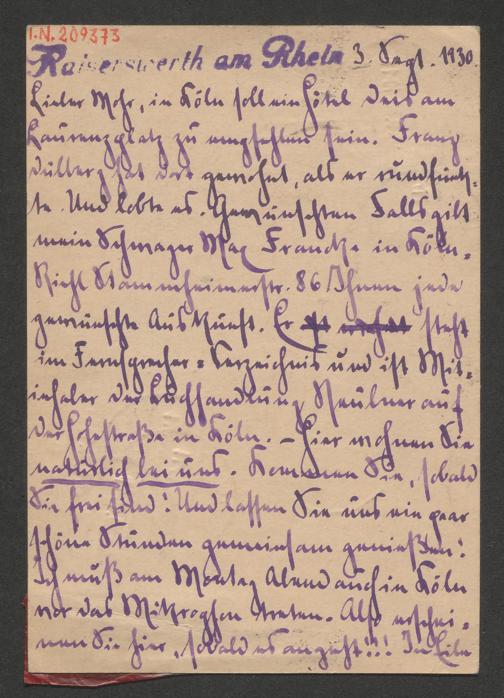 I.N. 209373
Kaiserswerth am Rhein 3. Sept. 1930.
Lieber Mohr, in Köln soll ein Hôtel Deis am
Laurenzplatz zu empfehlen sein. Franz
Dülberg hat dort gewohnt, als er rundfunk-
te. Und lobte es. Gewünschten Falls gibt
mein Schwager Max Francke in Köln-
Riehl Stammheimerstr. 86 Ihnen jede
gewünschte Auskunft. Er steht
im Fernsprecher-Verzeichnis und ist Mit-
inhaber der Buchhandlung auf
der Hohestraße in Köln. – Hier wohnen Sie
natürlich bei uns. Kommen Sie, sobald
Sie frei sind! Und lassen Sie uns ein paar
schöne Stunden gemeinsam genießen!
Ich muß am Montag Abend auch in Köln
vor das Mikrophon treten. Also erschei-
nen Sie hier, sobald es angeht!!! In Eile